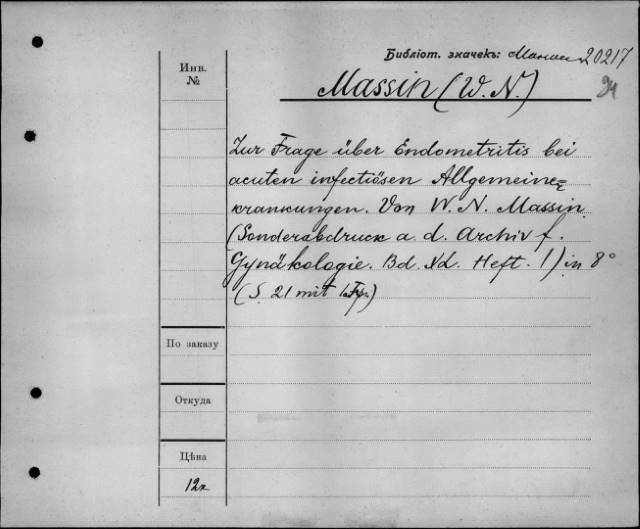 Библіот. значекъ: 20217
Инв.
№
Massin (W. N.)
Zur Frage über Endometritis bei
acuten infectiösen Allgemeine=
krankungen. Von W. N. Massin
(Sonderabdruck a. d. Archiv f.
Gynäkologie. Bd. XL. Heft. 1) in 8°
(S. 21 mit 1
По заказу
Откуда
Цѣна
12к